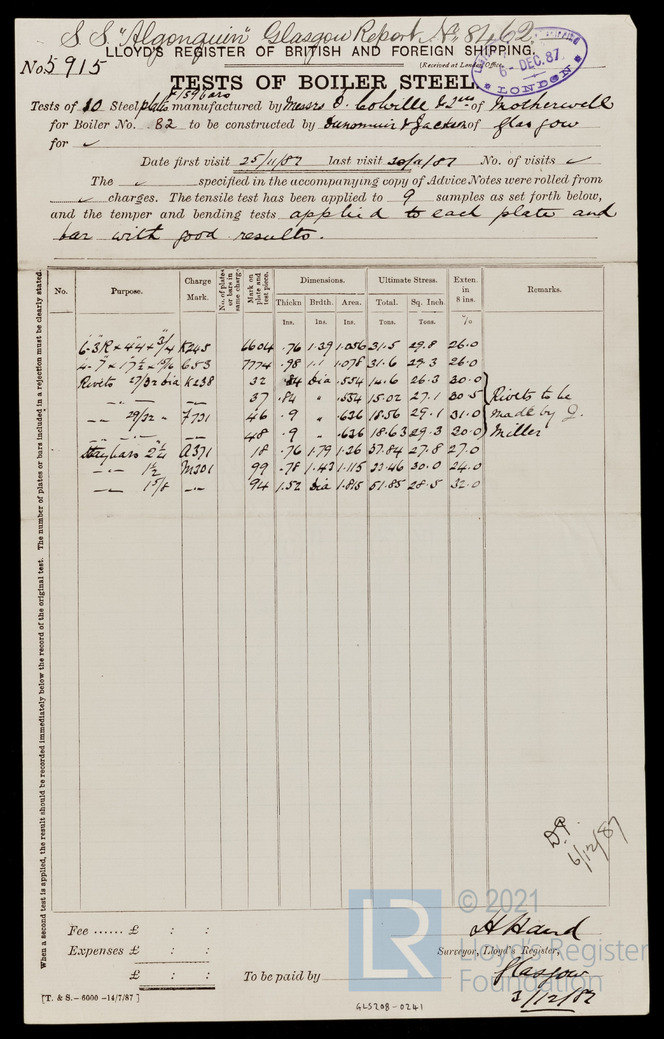 S.S. "Algonquin" Glasgow Report No 8462
LLOYD'S REGISTER OF BRITISH AND FOREIGN SHIPPING.
No. 5915
(Received at London Office
6 - DEC. 87.
LONDON
TESTS OF BOILER STEEL.
& 159 bars
Tests of 10 Steel plate manufactured by Messrs D. Colville & Sons of Motherwell
for Boiler No. 82 to be constructed by Dunsmuir & Jackson of Glasgow
for ✓
Date first visit 25/11/87 last visit 30/11/87 No. of visits ✓
The ✓ specified in the accompanying copy of Advice Notes were rolled from
✓ charges. The tensile test has been applied to 9 samples as set forth below,
and the temper and bending tests applied to each plate and
bar with good results.
No. Purpose. Charge Mark. No. of plates or bars in same charge. Mark on plate and test piece. Dimensions. Ultimate Stress. Exten. in 8 ins. Remarks.
Thickn Brdth. Area. Total. Sq. Inch.
Ins. Ins. Tons. Tons. %
6-3/R × 4" × 4" × 3/4 K245 6604 .76 1.39 1.056 31.5 29.8 26.0
4-7" × 17½ × 15/16 653 7774 .98 1.1 1.078 31.6 29.3 26.0
Rivets 27/32 dia K238 32 .84 dia .554 14.6 26.3 30.0
-"- -"- 37 .84 " .554 15.02 27.1 30.5 Rivets to be
-"- 29/32 " 7731 46 .9 " .636 18.56 29.1 31.0 made by J.
-"- -"- 48 .9 " .636 18.63 29.3 30.0 Miller
Stay bars 2¼ A371 18 .76 1.79 1.36 37.84 27.8 27.0
-"- 1½ M301 99 .78 1.43 1.115 33.46 30.0 24.0
-"- 1⅝ -"- 94 1.52 dia 1.815 51.85 28.5 32.0
When a second test is applied, the result should be recorded immediately below the record of the original test. The number of plates or bars included in a rejection must be clearly stated.
6/12/87
Fee ...... £ : :
Expenses £ : :
£ : :
To be paid by
H Hand
Surveyor, Lloyd's Register,
Glasgow
3/12/87
[T. & S.–6000 –14/7/87 ]
GLS208-0241
LR
© 2021
Lloyd's Register
Foundation